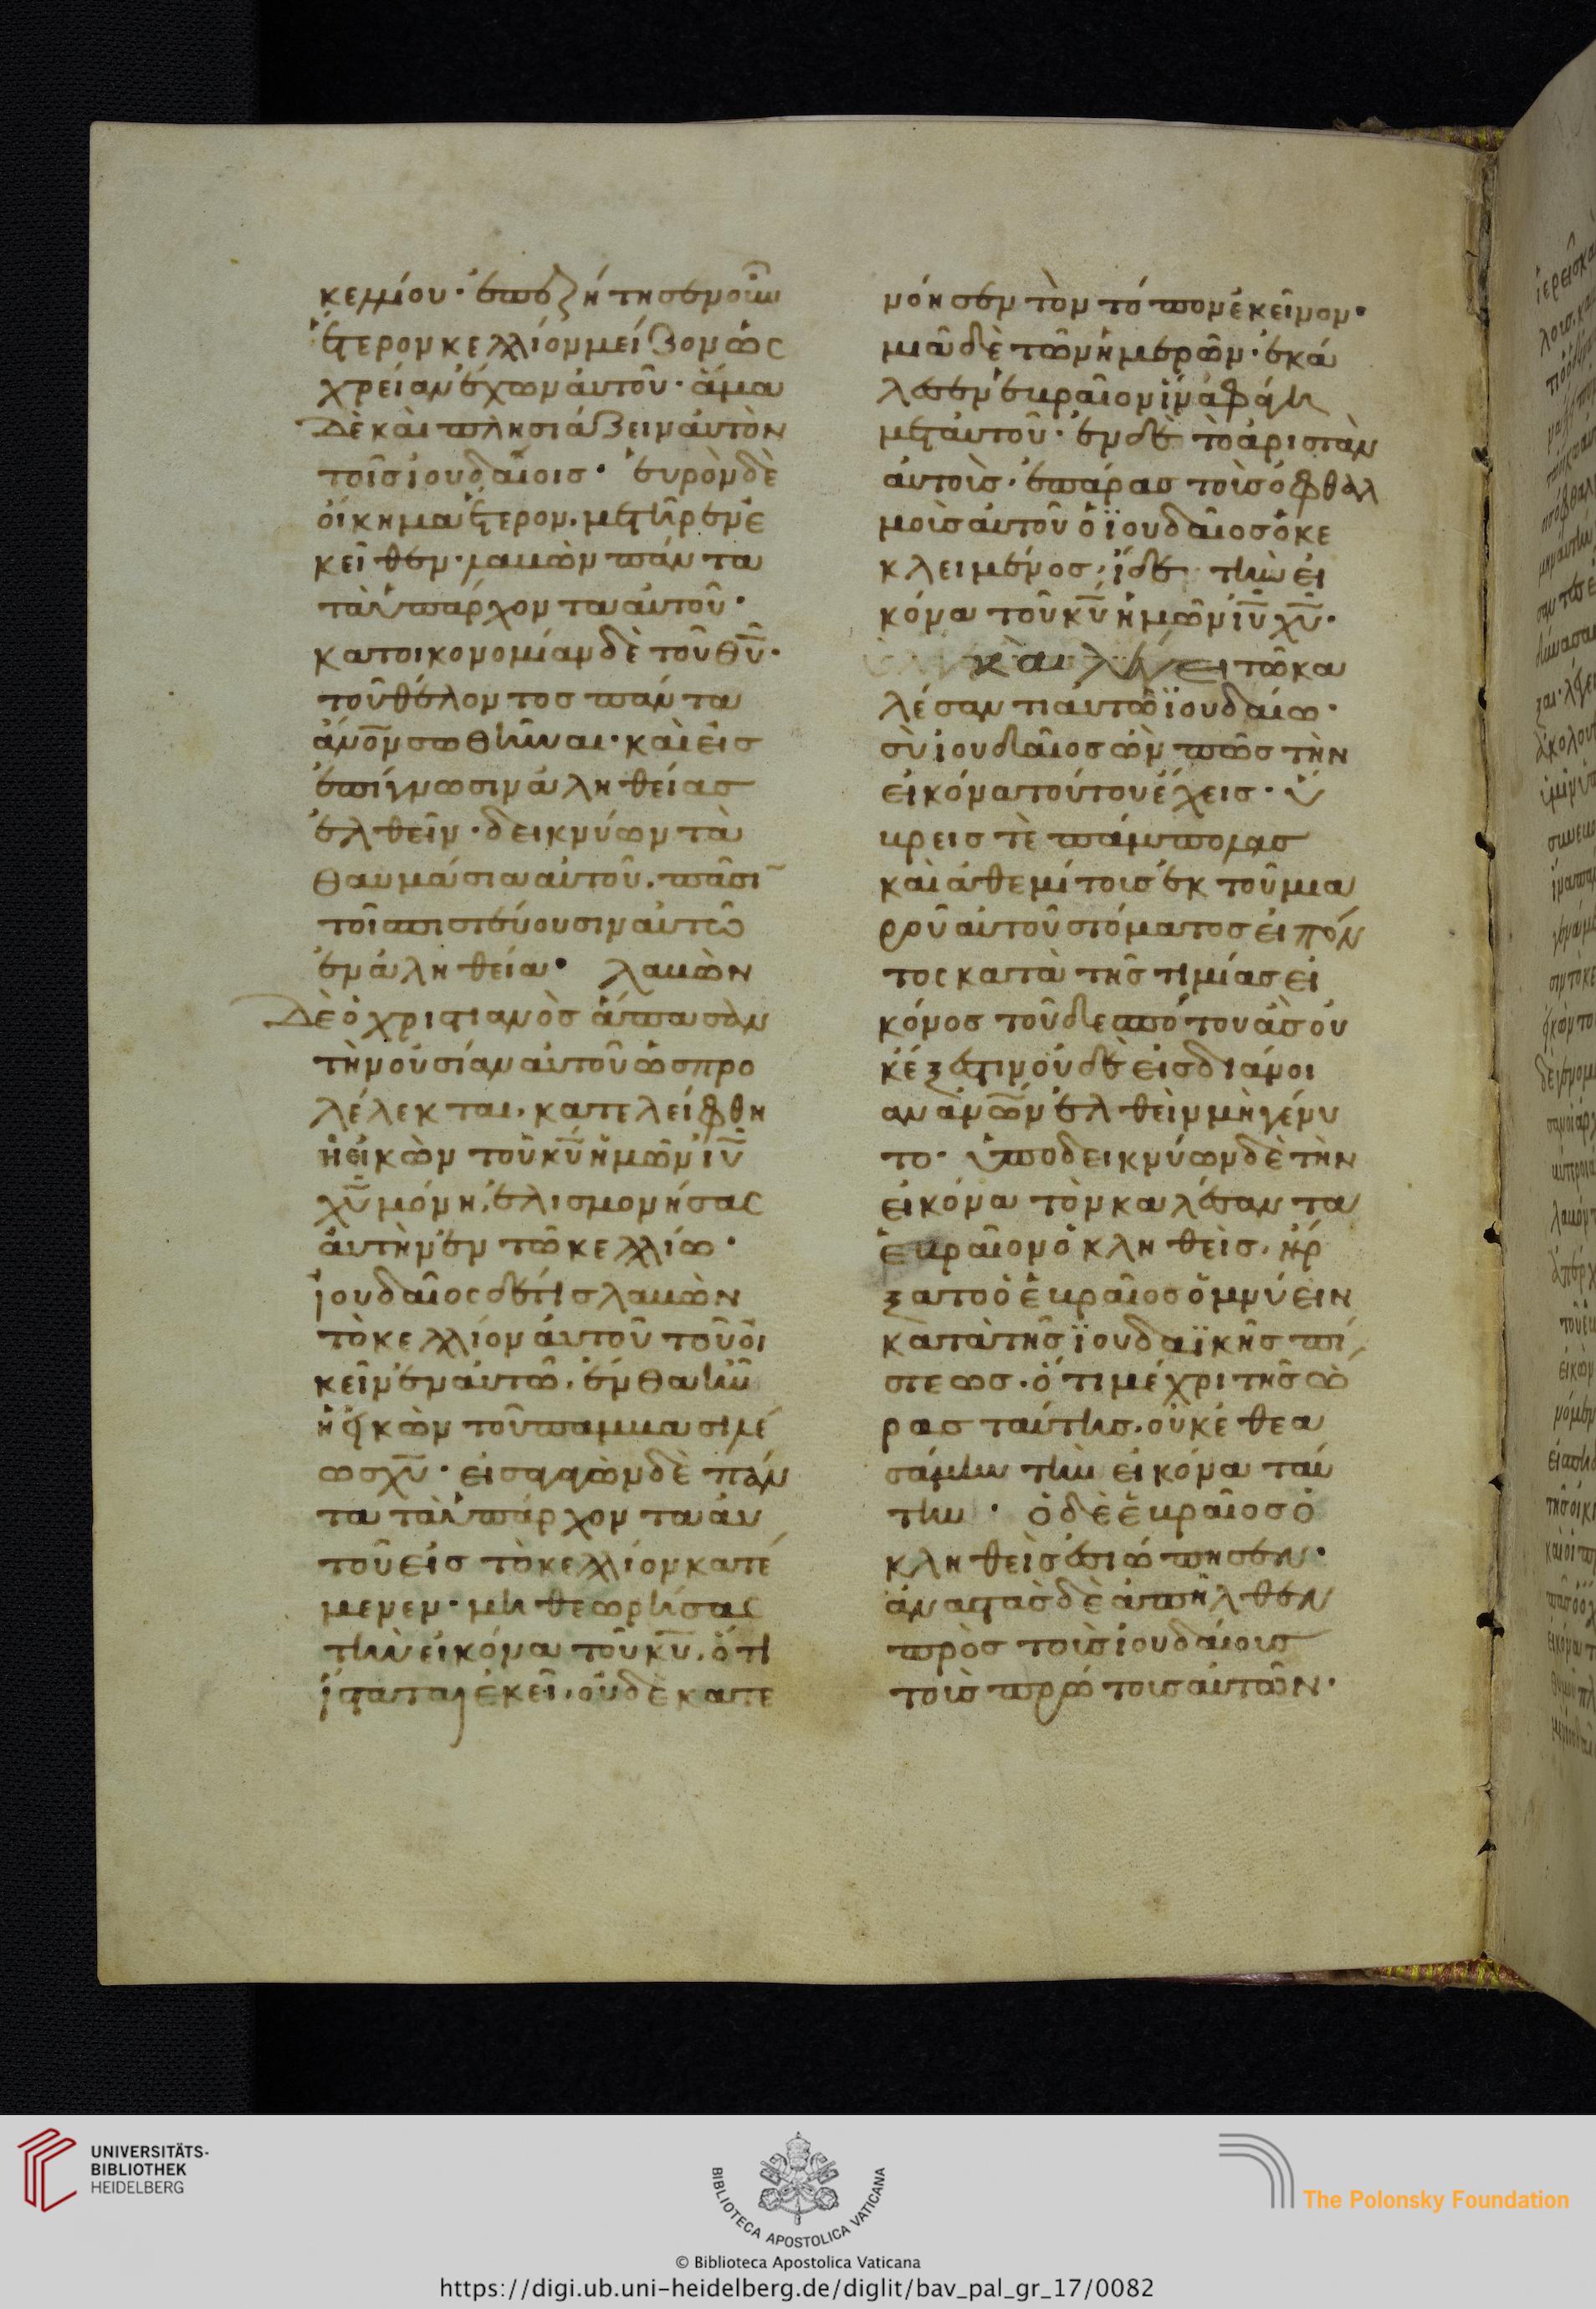 κελλίου· ἐπεζήτησεν οὖν
ἕτερον κελλίον μείζον ὡς
χρείαν ἔχων αὐτοῦ· ἅμα
δὲ καὶ πλησιάζειν αὐτὸν
τοῖς ἰουδαίοις· εὑρὸν δὲ
οἴκημα ἕτερον. μετῆρεν ἐ
κεῖθεν· λαβὼν πάντα
τὰ ὑπάρχοντα αὐτοῦ·
κατοικονομίαν δὲ τοῦ θῦ·
τοῦ θέλοντος πάντα
ἄνον σωθῆναι· καὶ εἰς
ἐπίγνωσιν ἀληθείας
ἐλθεῖν· δεικνύων τὰ
θαυμάσια αὐτοῦ. πᾶσι
τοῖ πιστεύουσιν αὐτῶ
ἐν ἀληθεία· λαβὼν
δὲ ὁ χριστιανὸς ἅπασαν
τὴν οὐσίαν αὐτοῦ ὡς προ
λέλεκται. κατελείφθη
ἡ εἰκὼν τοῦ κῦ ἡμῶν ἰῦ
χῦ μόνη, ἐλισμονήσας
αὐτὴν ἐν τῶ κελλίω·
ἰουδαῖος δέ τις λαβὼν
τὸ κελλίον αὐτοῦ τοῦ οἰ
κεῖν ἐν αὐτῶ. ἔνθα ἦν
ἡ εἰκὼν τοῦ παμβασιλέ
ως χῦ· εἰσαγαγὼν δὲ πάν
τα τὰ ὑπάρχοντα αὐ
τοῦ εἰς τὸ κελλίον κατέ
μενεν· μὴ θεωρήσας
τὴν εἰκόνα τοῦ κῦ, ὅτι
ἵσταται ἐκεῖ. οὐδὲ κατε
νόησεν τὸν τόπον ἐκεῖνον·
μιᾶ δὲ τῶν ἡμερῶν· ἐκά
λεσεν ἑβραῖον ἵνα φάγη
μεταυτοῦ· ἐν δὲ τὸ ἀριστὰν
αὐτοὺς· ἐπάρας τοὺς ὀφθαλ
μοὺς αὐτοῦ ὁ ϊουδαῖος ὁ κε
κλειμένος· ἴδε τὴν εἰ
κόνα τοῦ κῦ ἡμῶν ἰῦ χῦ·
καὶ λέγει τῶ κα
λέσαντι αὐτῶ ϊουδαίω·
σὺ ἰουδαῖος ὢν πῶς τὴν
εἰκόνα τούτου ἔχεις· ὕ
βρεις τὲ παμπόλας
καὶ ἀθεμίτους ἐκ τοῦ μια
ροῦ αὐτοῦ στόματος εἰπόν
τος κατὰ τῆς τιμίας εἰ
κόνος τοῦ δεσπότου ἃς οὐ
κέξεστιν οὐδὲ εἰς διάνοι
αν ἀνῶν ἐλθεῖν μὴ γένυ
το· ὑποδεικνύων δὲ τὴν
εἰκόνα τὸν καλέσαντα
ἑβραῖον ὁ κληθεὶς. ἤρ
ξατο ὁ ἑβραῖος ὀμνύειν
κατὰ τῆς ϊουδαϊκῆς πί
στεως. ὅτι μέχρι τῆς ὥ
ρας ταύτης. οὐκ ἐθεα
σάμην τὴν εἰκόνα ταύ
την· ὁ δὲ ἑβραῖος ὁ
κληθεὶς ἐσιώπησεν·
ἀναστὰς δὲ ἀπῆλθεν
πρὸς τοὺς ἰουδαίους
τοὺς πρώτους αὐτῶν·
UNIVERSITÄTS-
BIBLIOTHEK
HEIDELBERG
BIBLIOTECA APOSTOLICA VATICANA
The Polonsky Foundation
© Biblioteca Apostolica Vaticana
https://digi.ub.uni-heidelberg.de/diglit/bav_pal_gr_17/0082